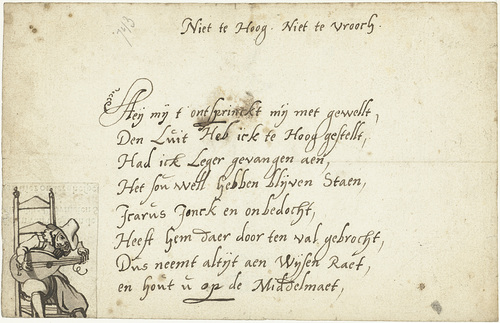 Niet te Hoog. Niet te vrooch.
743
Heij mij t ontsprinckt mij met gewelt,
Den Luit Heb ick te Hoog gestelt,
Had ick Leger gevangen aen,
Het sou well hebben blijven Staen,
Icarus Jonck en onbedocht,
Heeft hem daer door ten val gebrocht,
Dus neemt altijt aen Wijsen Raet,
en hout u op de Middelmaet,